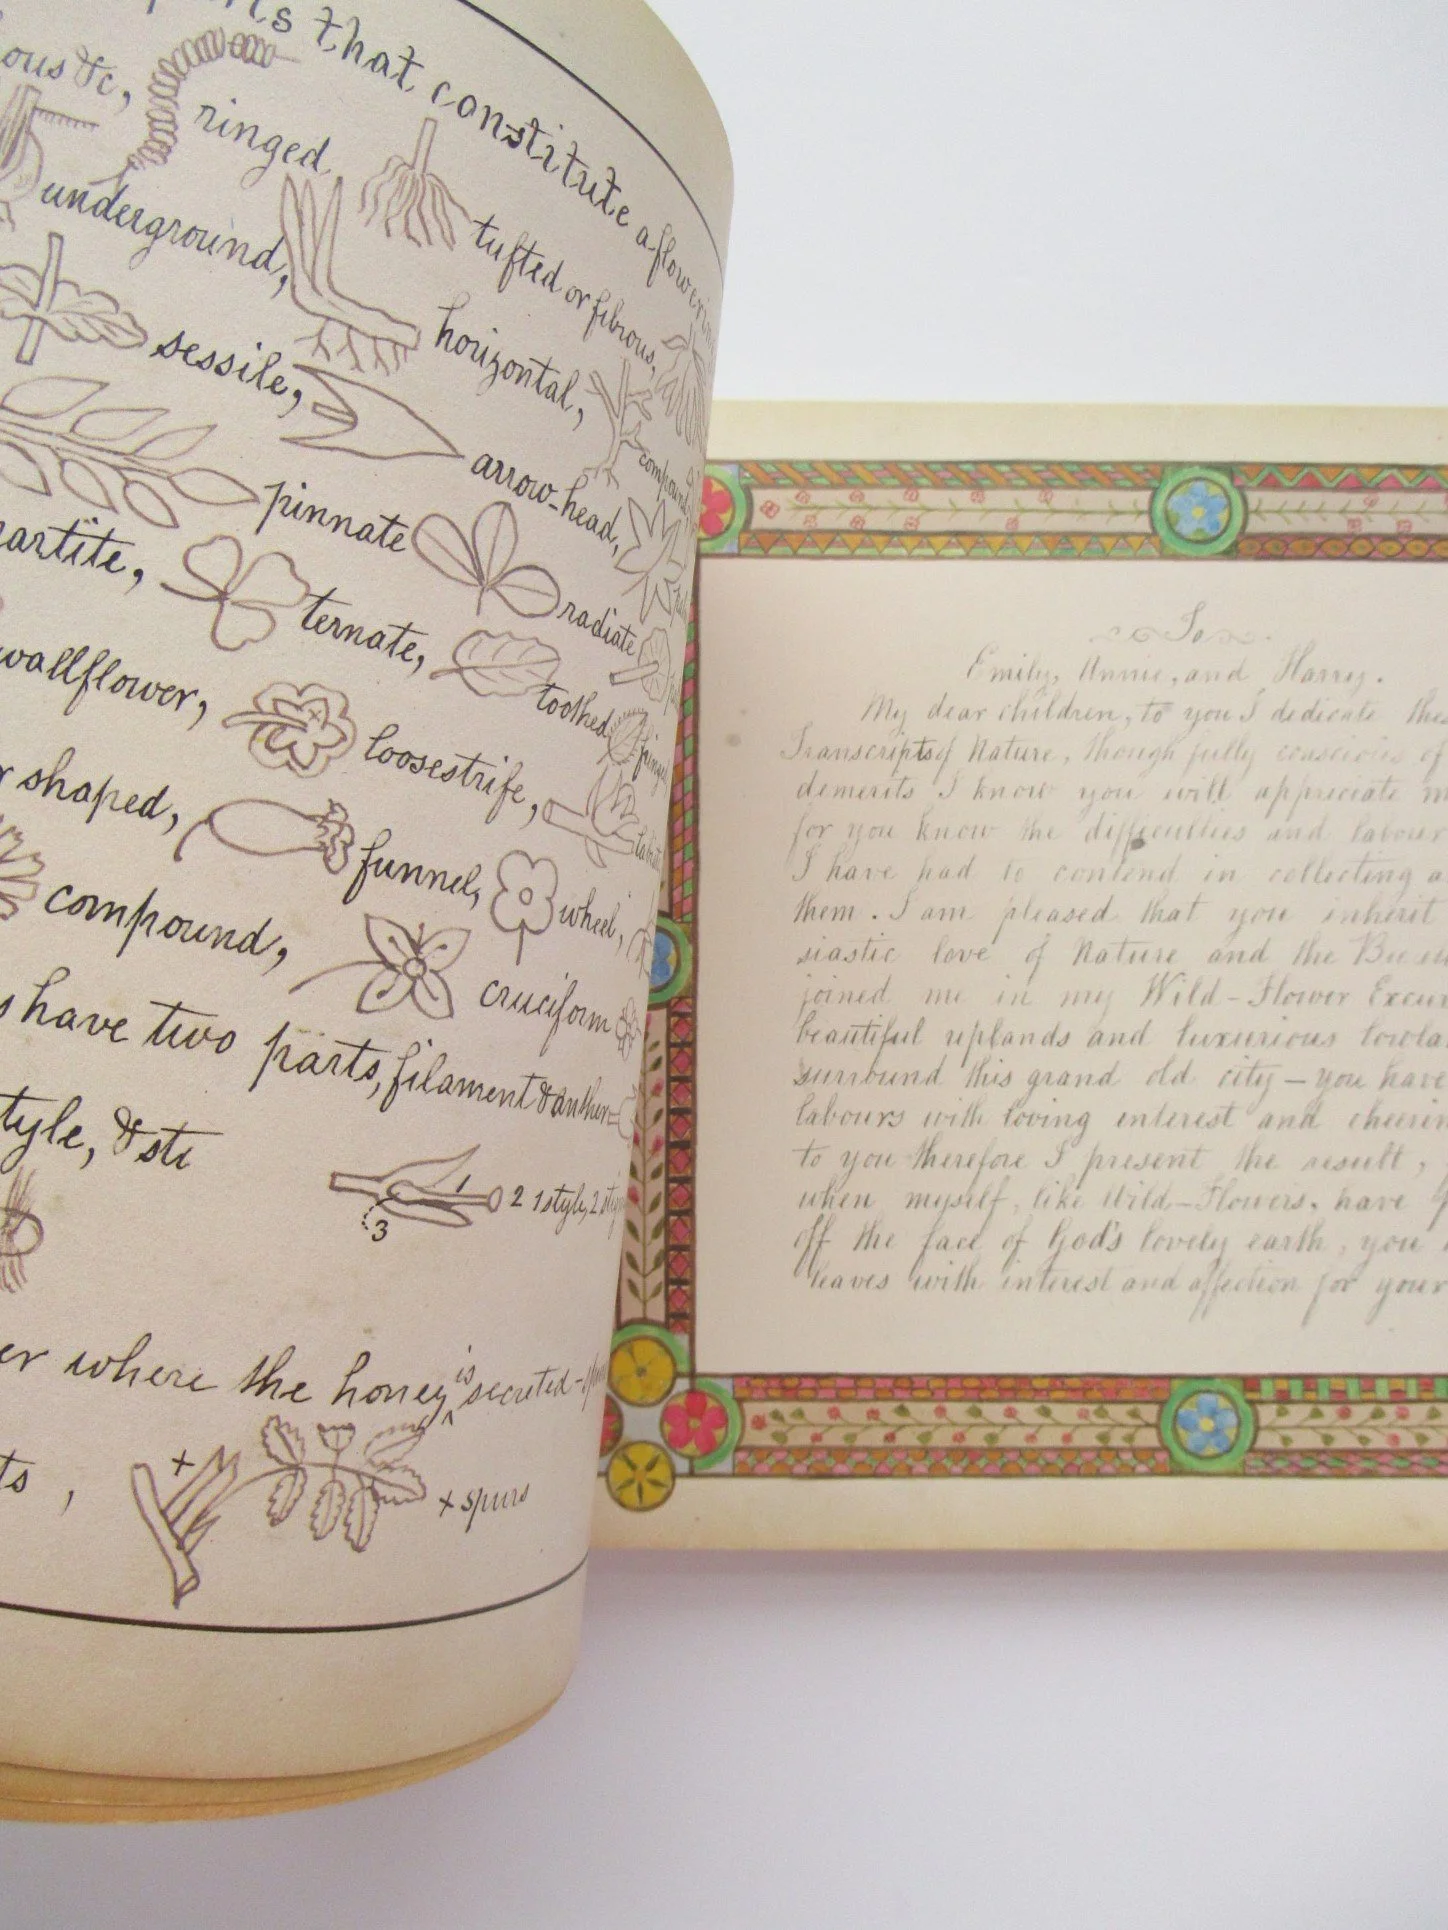 that constitute a flowering
ous &c, ringed tufted or fibrous,
underground, horizontal, compound,
sessile, arrow-head,
pinnate radiate
partite, ternate, toothed
wallflower, loosestrife,
r shaped, funnel, wheel,
compound, cruciform
s have two parts, filament & anther=
tyle, & sti
1 2 1 style, 2
3
er where the honey is secreted-
ts, + + spurs
To
Emily, Annie, and Harry.
My dear children, to you I dedicate thes
Transcripts of Nature, though fully conscious of
demerits I know you will appreciate m
for you know the difficulties and labour
I have had to contend in collecting a
them. I am pleased that you inherit
siastic love of Nature and the
joined me in my Wild-Flower Excur
beautiful uplands and luxurious lowla
surround this grand old city - you have
labours with loving interest and cheerin
to you therefore I present the result,
when myself, like Wild-Flowers, have
off the face of God's lovely earth, you
leaves with interest and affection for your